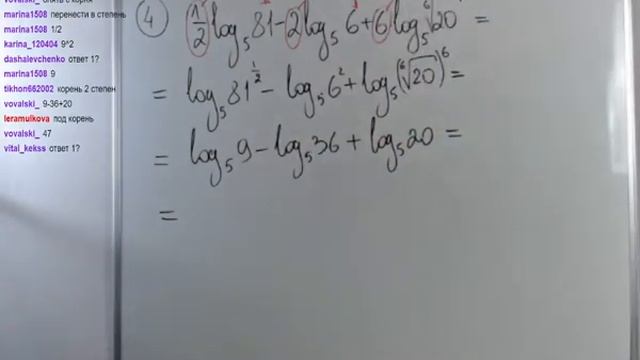 vovalski_ опять с корня
marina1508 перенести в степень
marina1508 1/2
karina_120404 9^2
dashalevchenko ответ 1?
marina1508 9
tikhon662002 корень 2 степен
vovalski_ 9-36+20
leramulkova под корень
vovalski_ 47
vital_kekss ответ 1?
4 1/2 log₅ 81 - 2 log₅ 6 + 6 log₅ ⁶√20 =
= log₅ 81^(1/2) - log₅ 6² + log₅ (⁶√20)⁶ =
= log₅ 9 - log₅ 36 + log₅ 20 =
=